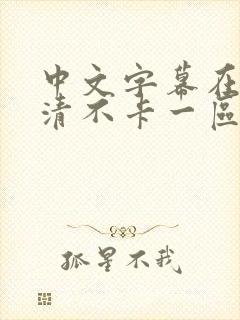 中文字幕在
清不卡一區
孤星不我